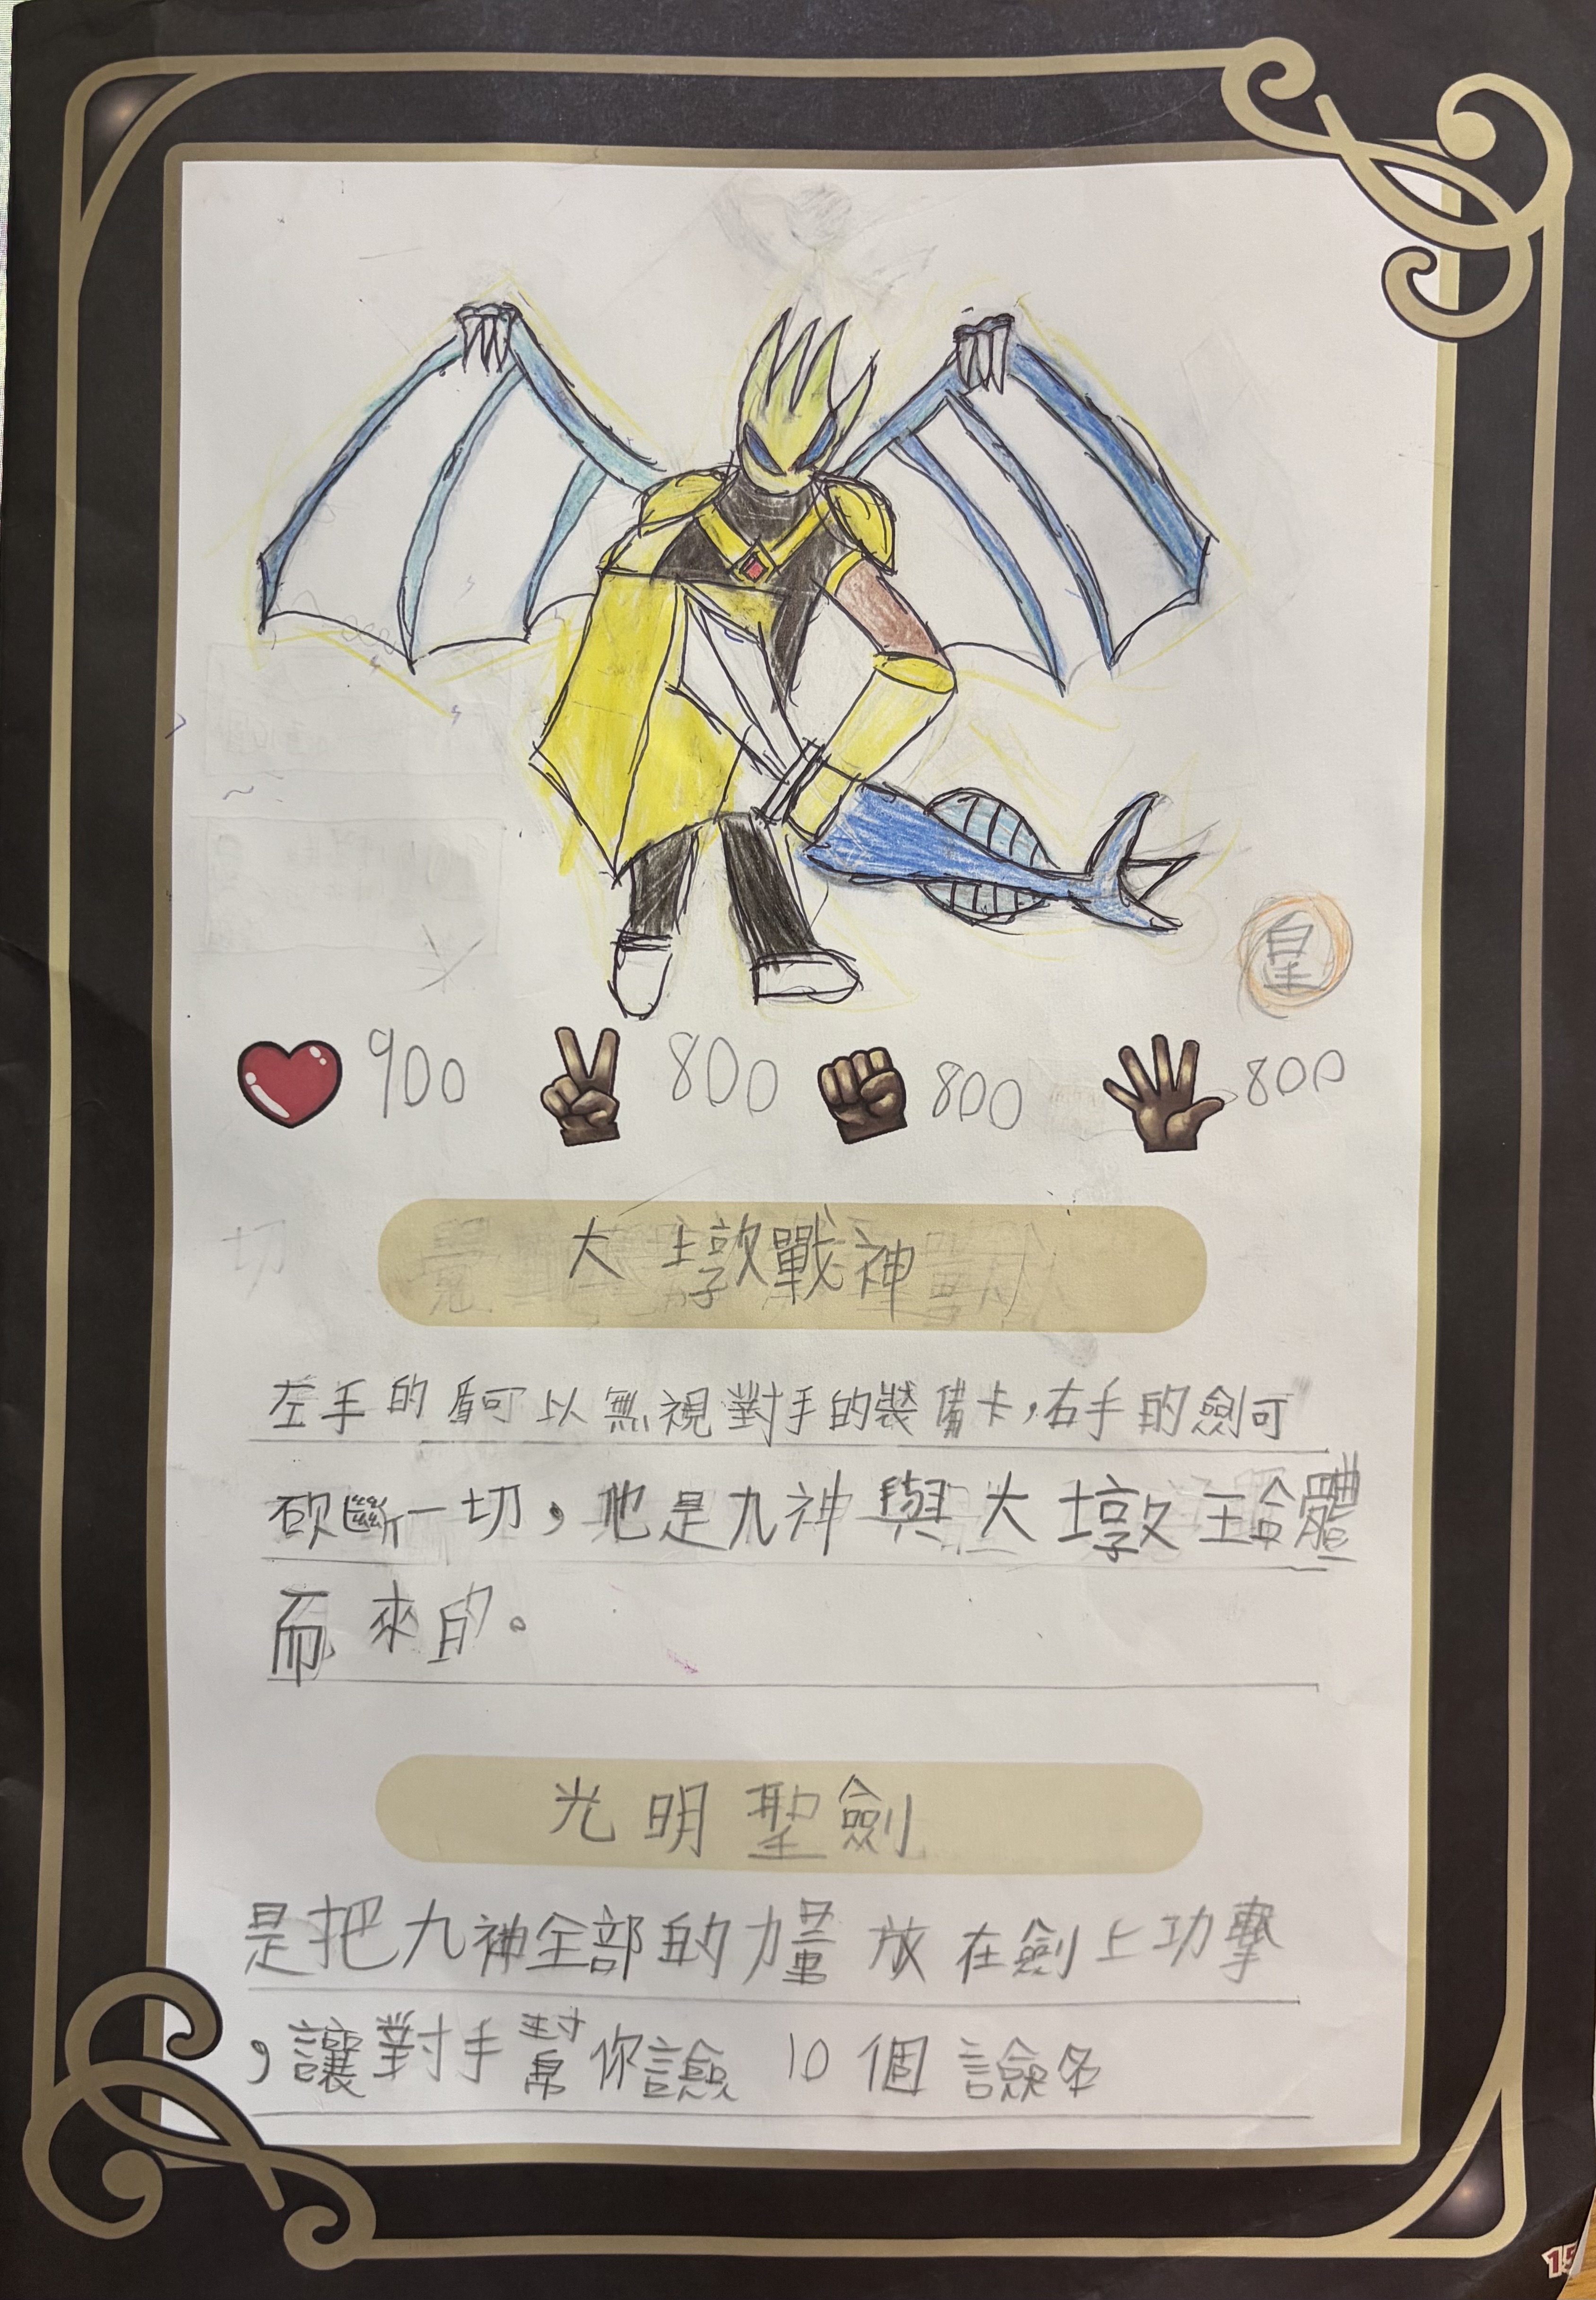 皇
900 800 800 800
大墩戰神
左手的盾可以無視對手的裝備卡,右手的劍可
砍斷一切,他是九神與大墩王合體
而來的。
光明聖劍
是把九神全部的力量放在劍上功擊
,讓對手幫你簽10個簽名
15